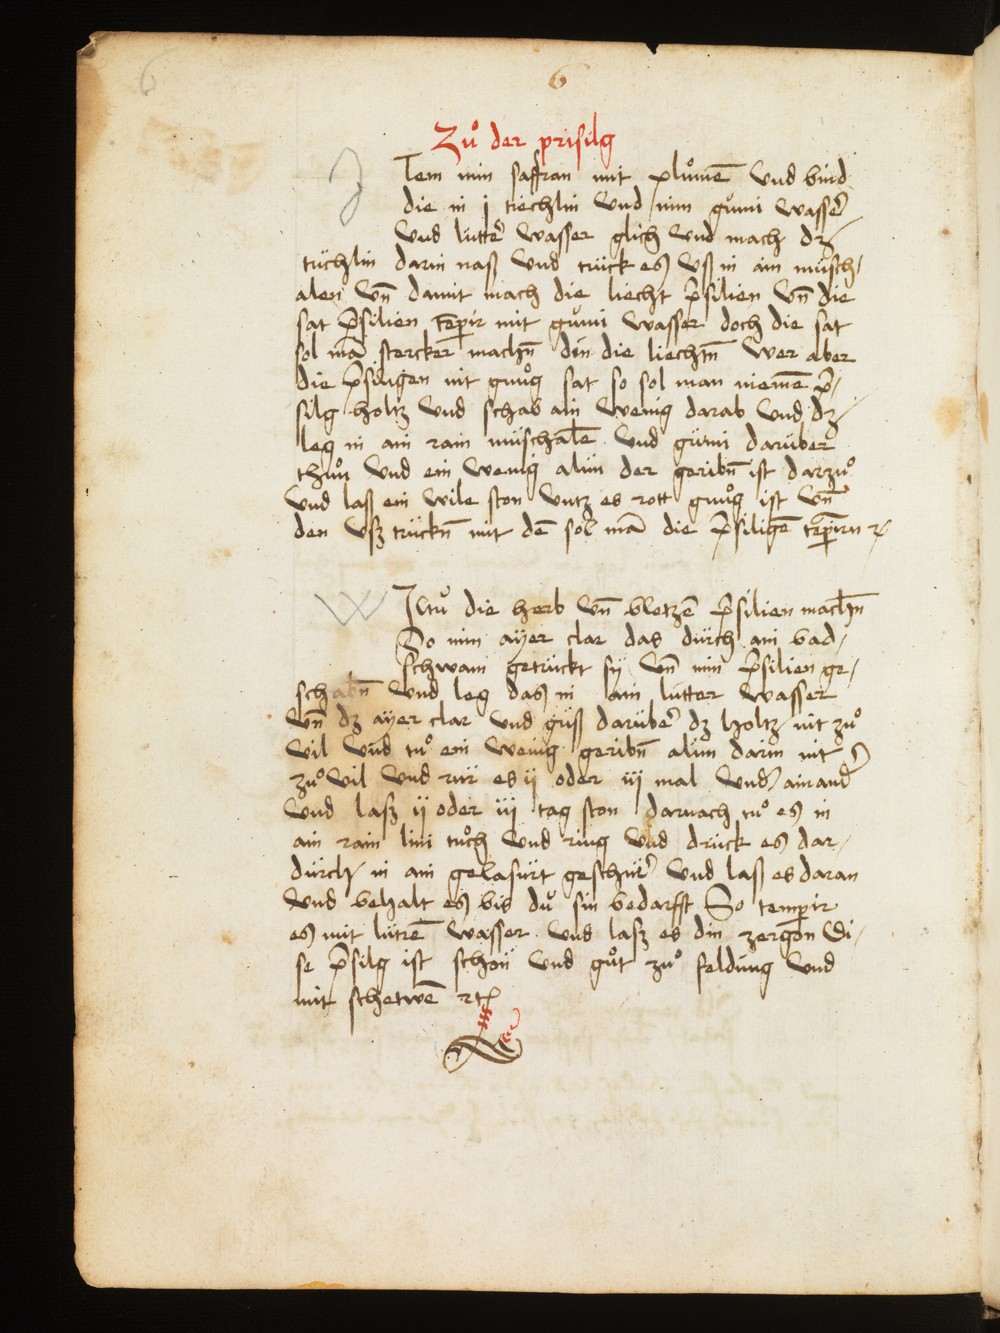 6
6
Zů der prisilg
J Tem nim saffran mit plůmē vnd bind
die in j tiechlin vnd nim gum̄i wasser̄
vnd lutter̄ wasser glich vnd mach dz
tüchlin darin naß vnd trück es vß in ain müsch/
alen vn̄ damit mach die liecht p̄silien vn̄ die
sat p̄silien tempir mit gum̄i wasser doch die sat
sol mā stercker machn̄ den die liechtn̄ wer aber
die p̄silgen nit gnůg sat so sol man niemē p̄/
silg holtz vnd schab ain wenig darab vnd dz
leg in ain rain müschalē vnd gum̄i darüber
thůn vnd ein wenig alun der geribn̄ ist darzů
vnd lass ein wile ston vntz es rott gnůg ist vn̄
den vsz trückn̄ mit dē sol mā die p̄siligē tempirn ⁊
W Jltu die herb vn̄ bletzē p̄silien machn̄
So nim ayer clar das durch ain bad/
schwam getrückt sy vn̄ nim p̄silien ge/
schabn̄ vnd leg das in ain lutter wasser
vn̄ dz ayer clar vnd güss darüber̄ dz holtz nit zů
vil vnd tů ein wenig geribn̄ alun darin nit
zů vil vnd rür es ij oder iij mal vnder ainander
vnd lasz ij oder iij tag ston darnach tů es in
ain rain lini tůch vnd ring vnd drück es dar/
durch in ain gelasürt geschir̄ vnd lass es daran
vnd behalt es bis du sin bedarfft So tempir
es mit lutrē wasser vnd lasz es din zergon Di/
se p̄silg ist schön vnd gůt zů feldung vnd
mit schetwē ⁊tc